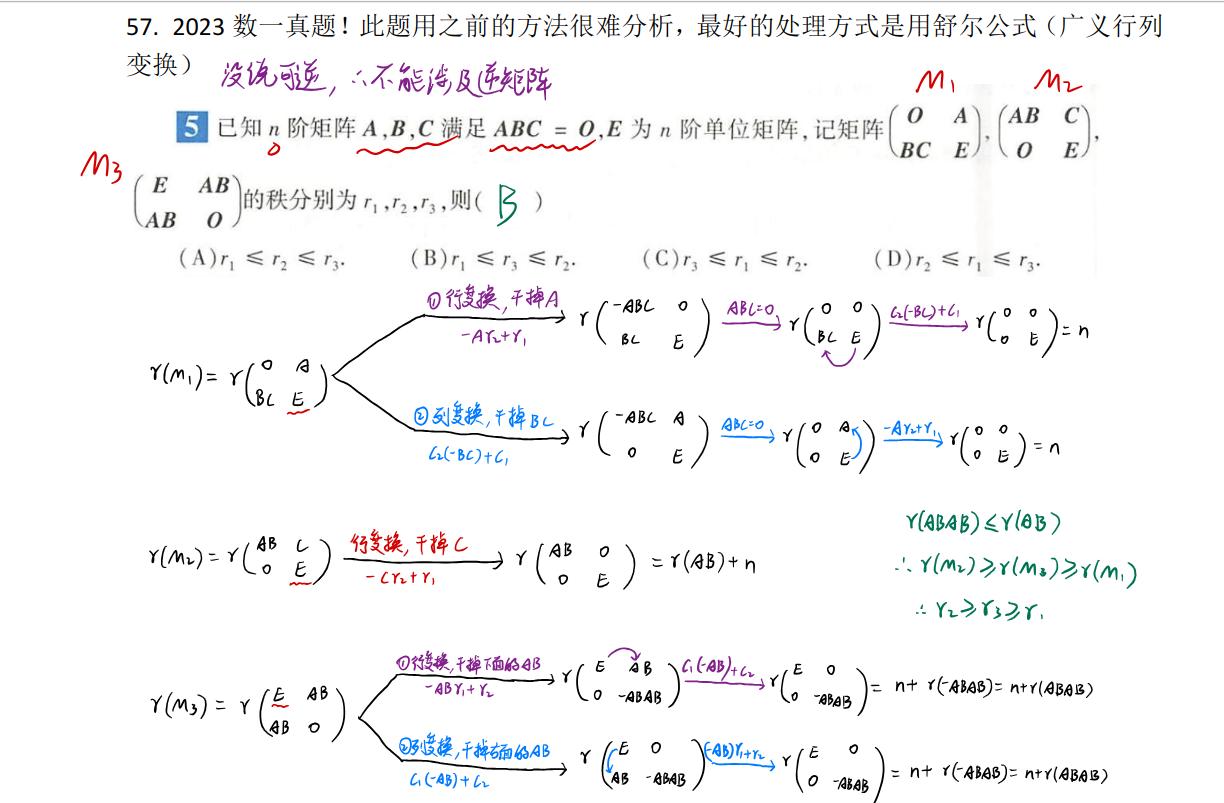 57. 2023 数一真题！此题用之前的方法很难分析，最好的处理方式是用舒尔公式（广义行列
变换） 没说可逆，∴不能涉及逆矩阵
M₁ M₂
5 已知 n 阶矩阵 A,B,C 满足 ABC = O,E 为 n 阶单位矩阵,记矩阵(O A; BC E),(AB C; O E),
M₃ (E AB; AB O)的秩分别为 r₁,r₂,r₃,则( B )
(A)r₁ ≤ r₂ ≤ r₃. (B)r₁ ≤ r₃ ≤ r₂. (C)r₃ ≤ r₁ ≤ r₂. (D)r₂ ≤ r₁ ≤ r₃.
①行变换,干掉A
-Ar₂+r₁ r(-ABC 0; BC E) ABC=0 r(0 0; BC E) C₂(-BC)+C₁ r(0 0; 0 E)=n
r(M₁)= r(0 A; BC E)
②列变换,干掉BC
C₂(-BC)+C₁ r(-ABC A; 0 E) ABC=0 r(0 A; 0 E) -Ar₂+r₁ r(0 0; 0 E)=n
r(M₂)=r(AB C; 0 E) 行变换,干掉C -Cr₂+r₁ r(AB 0; 0 E) =r(AB)+n
r(ABAB)≤r(AB)
∴ r(M₂)≥r(M₃)≥r(M₁)
∴ r₂≥r₃≥r₁
①行变换,干掉下面的AB
-ABr₁+r₂ r(E AB; 0 -ABAB) C₁(-AB)+C₂ r(E 0; 0 -ABAB)= n+ r(-ABAB)= n+r(ABAB)
r(M₃)= r(E AB; AB 0)
②列变换,干掉右面的AB
C₁(-AB)+C₂ r(E 0; AB -ABAB) (-AB)r₁+r₂ r(E 0; 0 -ABAB)= n+ r(-ABAB)= n+r(ABAB)